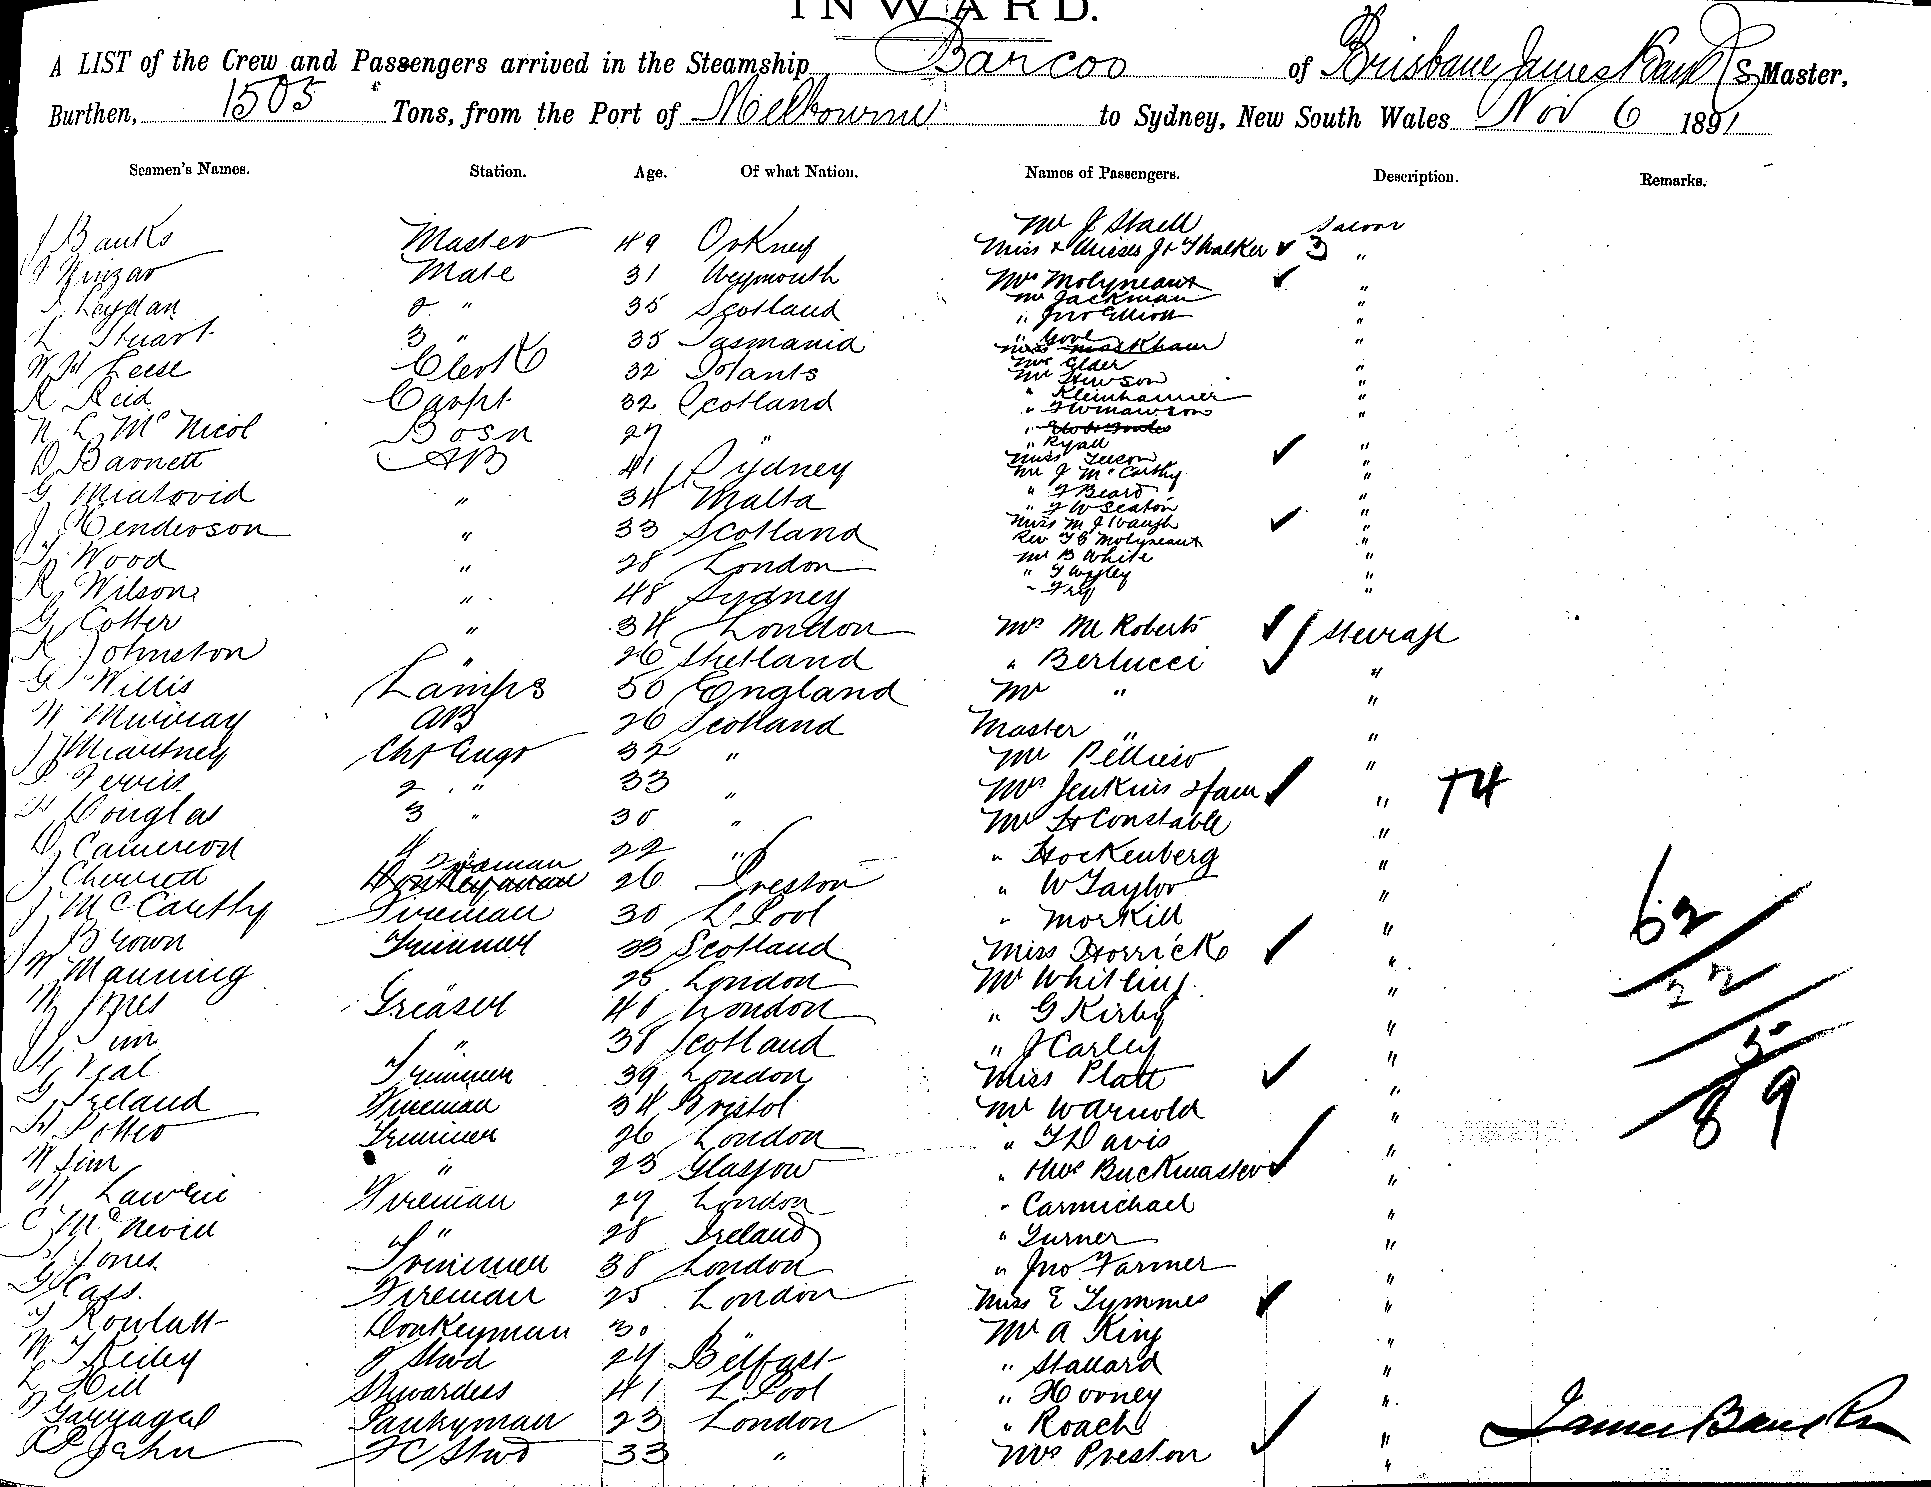 INWARD.
A LIST of the Crew and Passengers arrived in the Steamship Barcoo of Brisbane James Banks Master,
Burthen, 1505 Tons, from the Port of Melbourne to Sydney, New South Wales Nov 6 1891
Seamen's Names. Station. Age. Of what Nation. Names of Passengers. Description. Remarks.
J Banks Master 49 Orkney Mr J Stall Saloon
Mate 31 Weymouth Miss & Misses J & T Walker 3 "
Leydan 2 " 35 Scotland Mrs Molyneaux "
Mr Jackman "
Stuart 3 " 35 Tasmania " Jno Elliott "
W H Leese Clerk 32 Hants Miss Markham "
Mrs Elder "
R Reid Carpt 32 Scotland Mr Hewson "
" Kleinhammer "
N L McNicol Bosn 27 "
D Barnett AB 41 Sydney " Ryall "
Mr J McCarthy "
G Miatovid " 34 Malta " F Beard "
" F W Seaton "
J Henderson " 33 Scotland Miss M J Waugh "
Rev T E Molyneaux "
Wood " 28 London Mr B White "
R Wilson " 48 Sydney
G Cotter " 34 London Mrs M Roberts Steerage
R Johnston " 26 Shetland " Bertucci "
G Willis Lamps 50 England Mr " "
W Murray AB 26 Scotland Master " "
J Miartney Chf Engr 32 " Mr "
2 " 33 " Mrs Jenkins & fam " +4
Douglas 3 " 30 " Mr Constable "
D Cameron 4 22 " " Hockenberg "
J Fireman Donkeyman 26 Preston " W Taylor "
J McCarthy Fireman 30 L'Pool " Morkill "
J Brown Trimmer 33 Scotland Miss Horricks "
W Manning " 25 London Mr Whitling "
W Jones Greaser 40 London " G Kirby "
" 38 Scotland " J Carley "
Neal Trimmer 39 London Miss Platt "
G Ireland Fireman 34 Bristol Mr W Arnold "
H Potter Trimmer 26 London " T Davis "
W Sim " 23 Glasgow " Thos Buckmaster "
Lawrie Fireman 27 London " Carmichael "
C McNevin " " 28 Ireland " Turner "
Jones Trimmer 38 London " Jno Farmer "
G Cass. Fireman 25 London Miss E Symmes "
T Rowlatt Donkeyman 30 " Mr A King "
W J Keiley 2 Stwd 24 Belfast " Stallard "
L Hill Stewardess 41 L'Pool " Hooney "
Pantryman 23 London " Roach "
John FC Stwd 33 " Mrs Preston "
62
22
5
89
James Banks